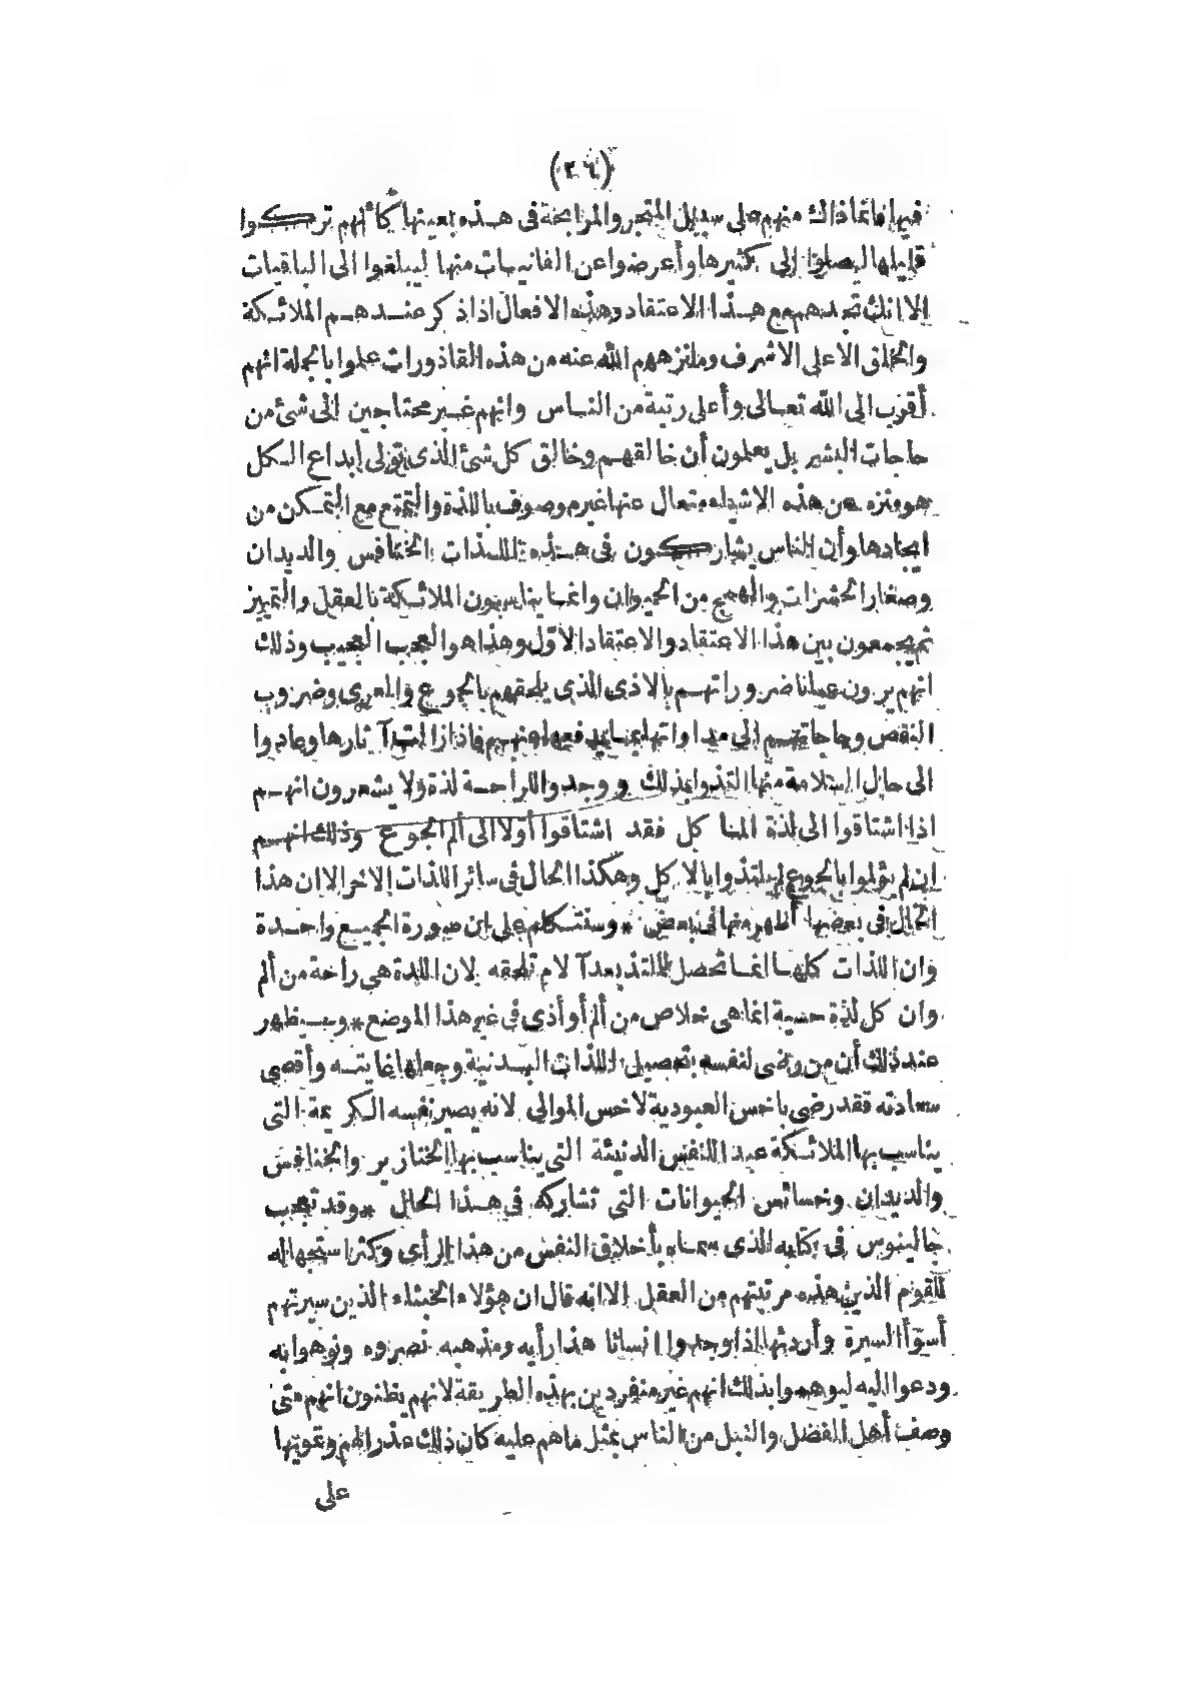 (٣٦)
فيها فانما ذلك منهم على سبيل المتجر والمرابحة فى هـذه بعينها كأنهم تركوا
قليلها ليصلوا الى كثيرها وأعرضوا عن الفانيات منها ليبلغوا الى الباقيات
الا انك تجدهم مع هـذا الاعتقاد وهذه الافعال اذا ذكر عنـدهـم الملائـكة
والخلق الاعلى الاشرف وما نزههم الله عنه من هذه القاذورات علموا بالجملة انهم
أقرب الى الله تعـالى وأعلى رتبة من النـاس وانهم غـير محتاجين الى شئ من
حاجات البشر بل يعلمون أن خالقهـم وخالق كل شئ الذى تولى ابداع الـكل
هو منزه عن هذه الاشياء متعال عنها غير موصوف باللذة والتمتع مع التمـكن من
ايجادها وأن الناس يشاركون فى هـذه اللـذات الخنافس والديدان
وصغار الحشرات والهمج من الحيوان وانمـا يناسبون الملائـكة بالعقل والتمييز
ثم يجمعون بين هذا الاعتقاد والاعتقاد الاوّل وهذا هو العجب العجيب وذلك
انهم يرون عيانا ضروراتهـم بالاذى الذى يلحقهم بالجوع والعرى وضروب
النقص وحاجاتهـم الى مداواتها بما يدفعها عنهـم فاذا زالت آثارها وعادوا
الى حال السلامة منها التذوا بذلك ووجدوا للراحـة لذة ولا يشعرون انهـم
اذا اشتاقوا الى لذة المأ كل فقد اشتاقوا أولا الى ألم الجوع وذلك انهـم
ان لم يؤلموا بالجوع لم يلتذوا بالا كل وهكذا الحال فى سائر اللذات الاخر الا ان هذا
الحال فى بعضها أظهر منها فى بعض * وسنتـكلم على ان صورة الجميـع واحـدة
وان اللذات كلهـا انمـا تحصل للملتذ بعد آلام تلحقه لان اللذة هى راحة من ألم
وان كل لذة حسية انما هى خلاص من ألم أو أذى فى غير هذا الموضع * وسـيظهر
عند ذلك أن من رضى لنفسه بتحصيل اللذات البـدنية وجعلها غايتـه وأقصى
سعادته فقد رضى باخس العبودية لاخس الموالى لانه يصير نفسه الـكريمة التى
يناسب بها الملائـكة عبدا للنفس الدنيئة التى يناسب بها الخنازير والخنافس
والديدان وخسائس الحيوانات التى تشاركه فى هـذا الحال * وقد تعجب
جالينوس فى كتابه الذى سمـاه بأخلاق النفس من هذا الرأى وكثر استجهاله
للقوم الذين هذه مرتبتهم من العقل الا انه قال ان هؤلاء الخبثاء الذين سيرتهم
أسوأ السيرة وأردئها اذا وجدوا انسانا هذا رأيه ومذهبه نصروه ونوهوا به
ودعوا اليه ليوهموا بذلك انهم غير منفردين بهذه الطريقة لانهم يظنون انهم متى
وصف أهل الفضل والنبل من الناس بمثل ما هم عليه كان ذلك عذرا لهم وتمويها
على